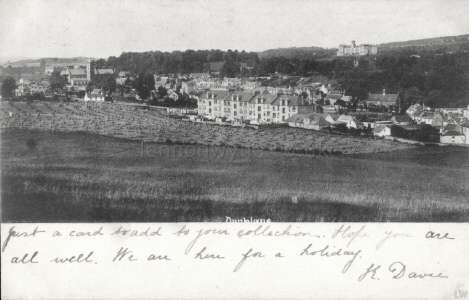 Dunblane
Just a card to add to your collection. Hope you are
all well. We are here for a holiday.
K. Davie